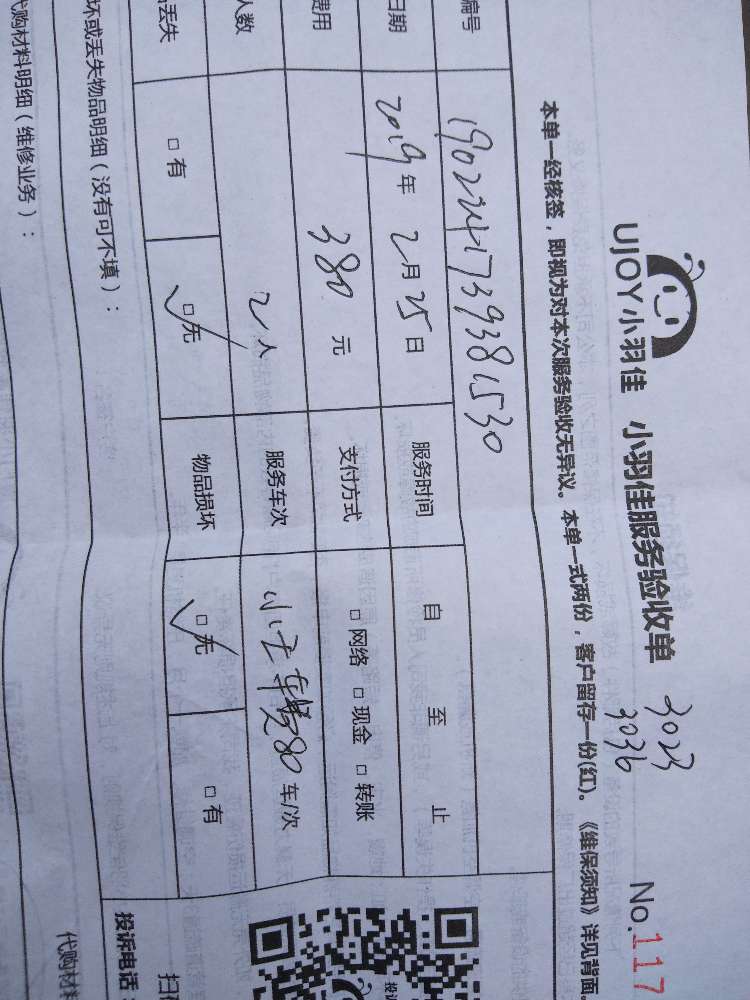 UJOY小羽佳 小羽佳服务验收单
3023
3036
No.117
本单一经核签，即视为对本次服务验收无异议。本单一式两份，客户留存一份(红)。《维保须知》详见背面。
编号
日期 2019年2月25日 服务时间 自 至 止
费用 380元 支付方式 □网络 □现金 □转账
人数 2人 服务车次 车/次
丢失 □有 □无 物品损坏 □无 □有
坏或丢失物品明细（没有可不填）：
代购材料明细（维修业务）：
投诉电话：
代购材料